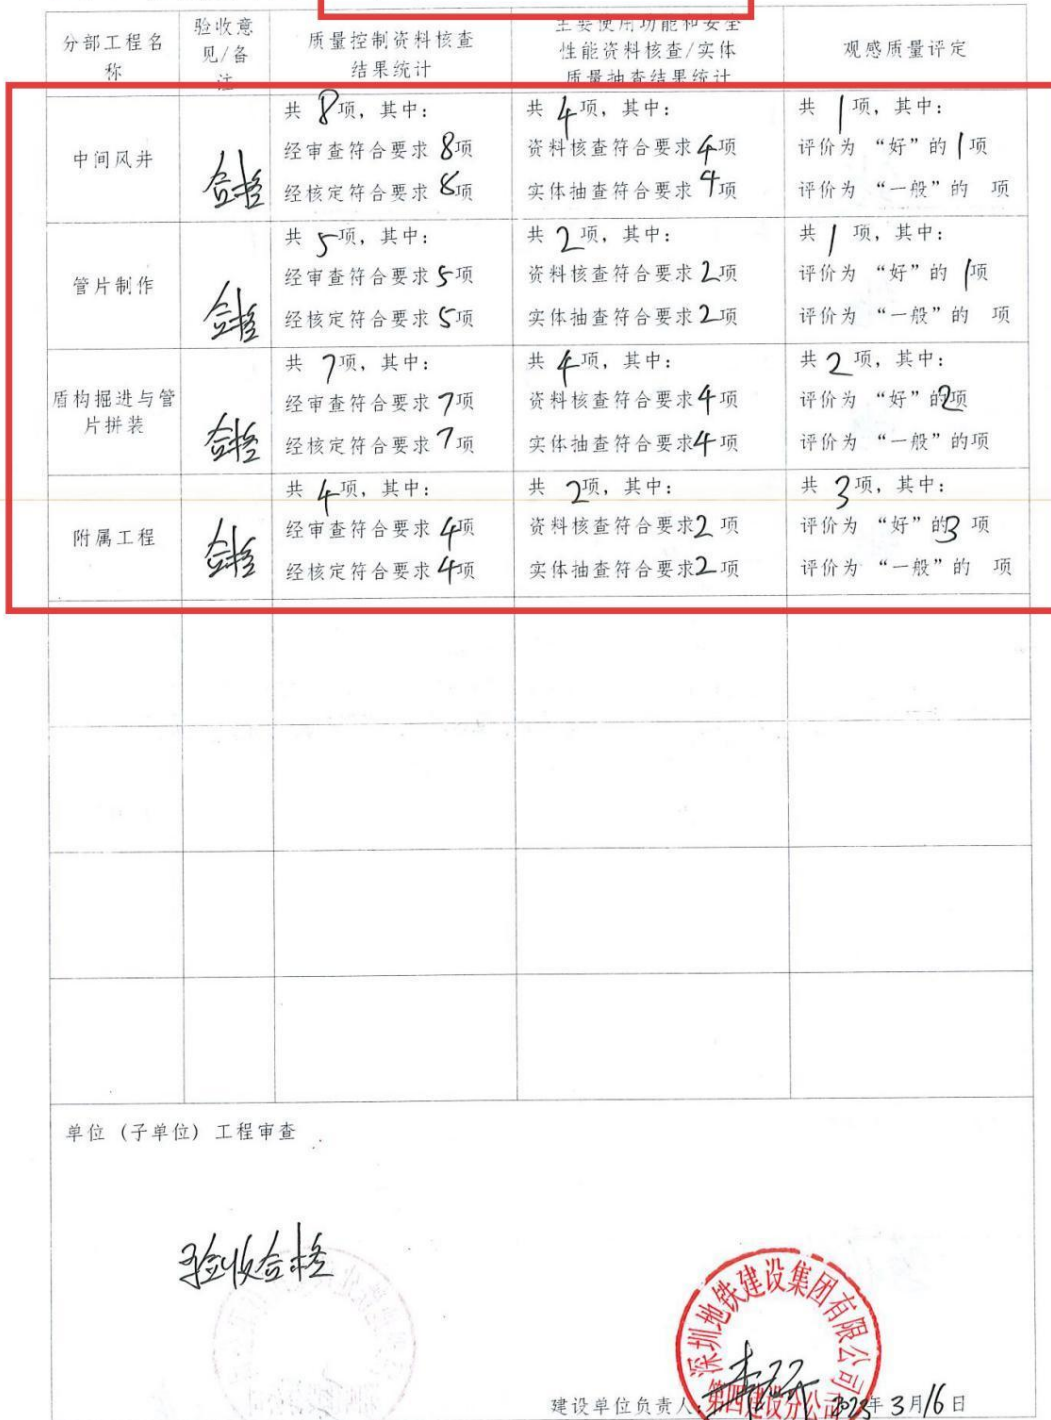 分部工程名
称
验收意
见/备
注
质量控制资料核查
结果统计
主要使用功能和安全
性能资料核查/实体
质量抽查结果统计
观感质量评定
中间风井
合格
共 8项，其中：
经审查符合要求 8项
经核定符合要求 8项
共 4项，其中：
资料核查符合要求4项
实体抽查符合要求 4项
共 1 项，其中：
评价为 “好”的1项
评价为 “一般”的 项
管片制作
合格
共 5项，其中：
经审查符合要求 5项
经核定符合要求 5项
共 2项，其中：
资料核查符合要求2项
实体抽查符合要求2项
共 1 项，其中：
评价为 “好”的 1项
评价为 “一般”的 项
盾构掘进与管
片拼装
合格
共 7项，其中：
经审查符合要求 7项
经核定符合要求 7项
共 4项，其中：
资料核查符合要求4项
实体抽查符合要求4项
共 2项，其中：
评价为 “好”的2项
评价为 “一般”的项
附属工程
合格
共 4项，其中：
经审查符合要求 4项
经核定符合要求 4项
共 2项，其中：
资料核查符合要求2 项
实体抽查符合要求2项
共 3项，其中：
评价为 “好”的3 项
评价为 “一般”的 项
单位（子单位）工程审查
验收合格
深圳地铁建设集团有限公司
第四建设分公司
建设单位负责人：
2023年 3月16日